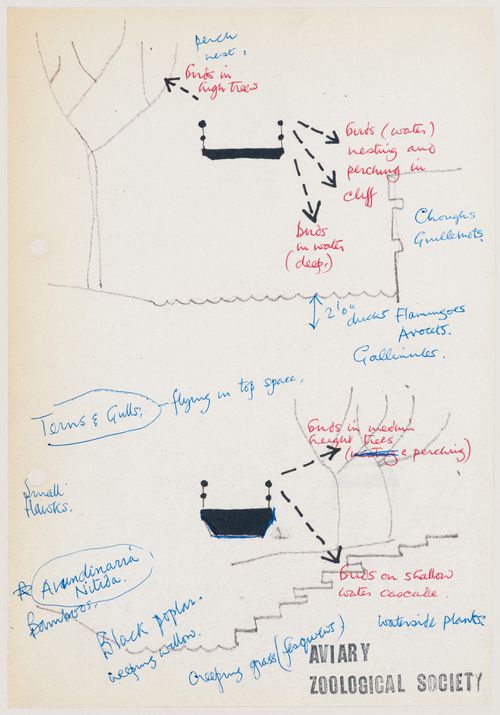 perch
nest,
birds in
high trees
birds (water)
nesting and
perching in
cliff
birds
in water
(deep)
Choughs
Guillemots.
2'0" ducks Flamingoes
Avocets.
Gallinules.
Terns & Gulls, - flying in top space,
birds in medium
height trees
(nesting & perching)
Small
Hawks.
Arundinaria,
Nitida.
Bamboos,
birds on shallow
water cascade.
Black poplar.
weeping willow.
Creeping grass (fesquens)
waterside plants
AVIARY
ZOOLOGICAL SOCIETY